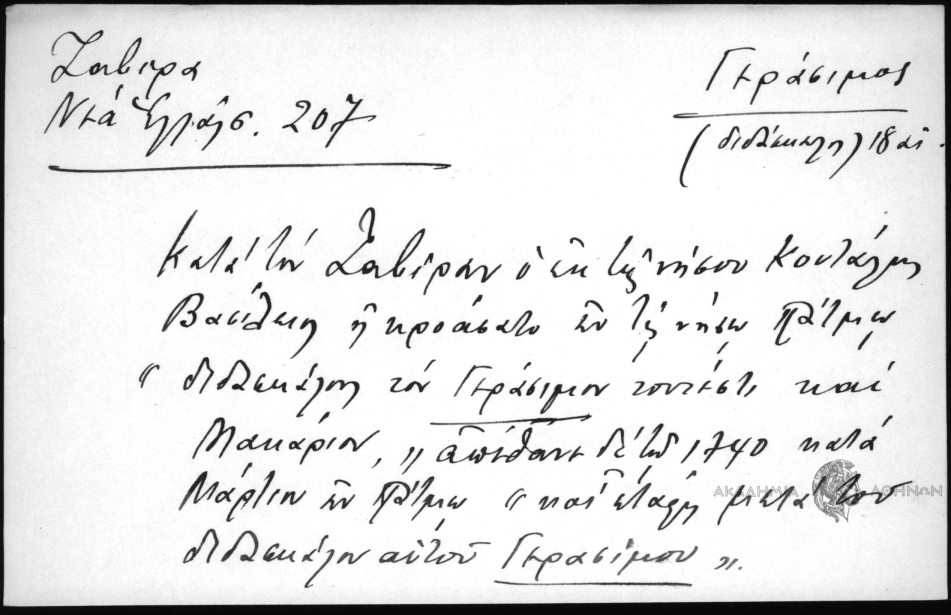 Ζαβίρα
Νέα Ἑλλάς. 207
Γεράσιμος
(διδάσκαλος) 18 αἰ.
Κατά τόν Ζαβίραν ὁ ἐκ τῆς νήσου Κουτάλης
Βασίλειος ἠκροάσατο ἐν τῇ νήσῳ Πάτμῳ
" διδασκάλους τόν Γεράσιμον τουτέστι καί
Μακάριον, " ἀπέθανε δέ τῷ 1740 κατά
Μάρτιον ἐν Πάτμῳ " καί ἐτάφη μετά τοῦ
διδασκάλου αὐτοῦ Γερασίμου ".
ΑΚΑΔΗΜΙΑ ΑΘΗΝΩΝ